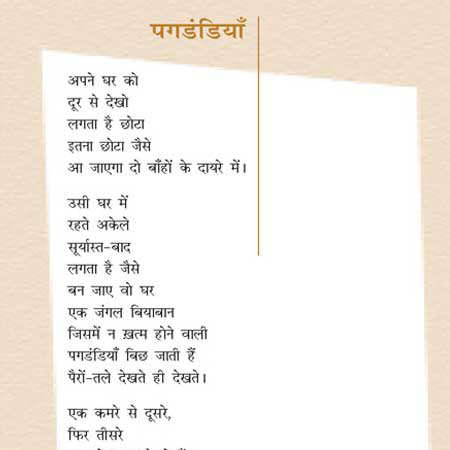 पगडंडियाँ
अपने घर को
दूर से देखो
लगता है छोटा
इतना छोटा जैसे
आ जाएगा दो बाँहों के दायरे में।
उसी घर में
रहते अकेले
सूर्यास्त-बाद
लगता है जैसे
बन जाए वो घर
एक जंगल बियाबान
जिसमें न ख़त्म होने वाली
पगडंडियाँ बिछ जाती हैं
पैरों-तले देखते ही देखते।
एक कमरे से दूसरे,
फिर तीसरे